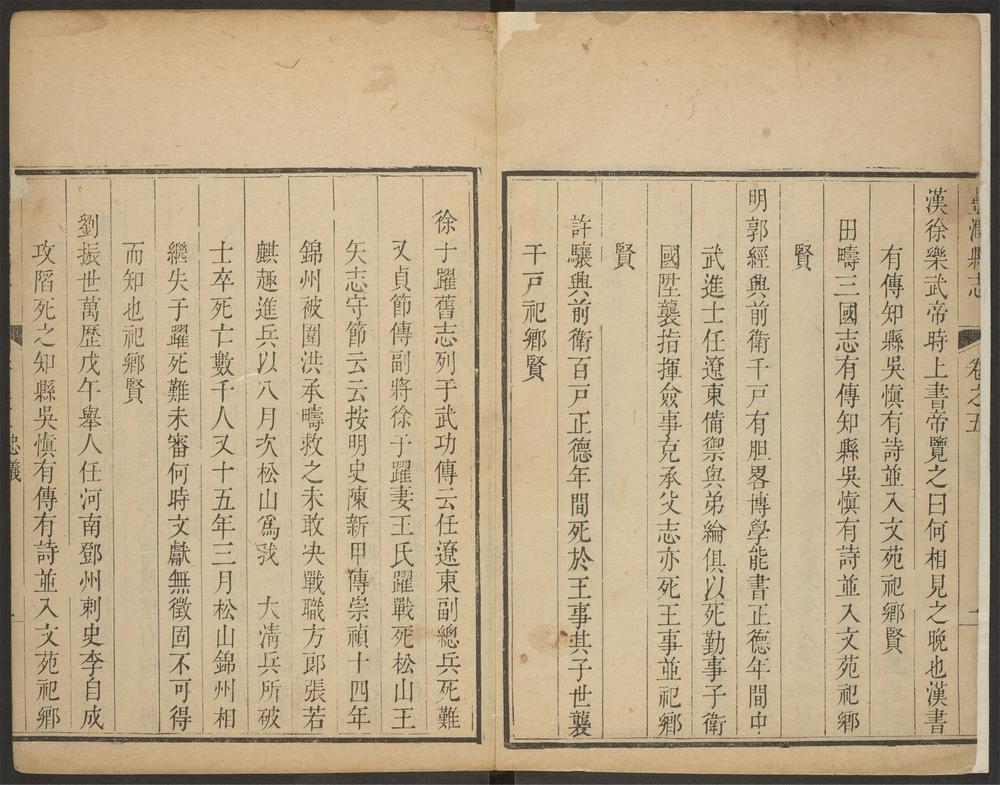 豐潤縣志
卷之五
漢徐樂武帝時上書帝覽之曰何相見之晚也漢書
有傳知縣吳慎有詩並入文苑祀鄉賢
田疇三國志有傳知縣吳慎有詩並入文苑祀鄉
賢
明郭經興前衛千戶有胆畧博學能書正德年間中
武進士任遼東備禦與弟綸俱以死勤事子衛
國陞襲指揮僉事克承父志亦死王事並祀鄉
賢
許驤興前衛百戶正德年間死於王事其子世襲
千戶祀鄉賢
徐于躍舊志列于武功傳云任遼東副總兵死難
又貞節傳副將徐于躍妻王氏躍戰死松山王
矢志守節云云按明史陳新甲傳崇禎十四年
錦州被圍洪承疇救之未敢决戰職方郎張若
麒趣進兵以八月次松山爲我 大清兵所破
士卒死亡數千人又十五年三月松山錦州相
繼失于躍死難未審何時文獻無徵固不可得
而知也祀鄉賢
劉振世萬歷戊午舉人任河南鄧州刺史李自成
攻陷死之知縣吳慎有傳有詩並入文苑祀鄉
忠義